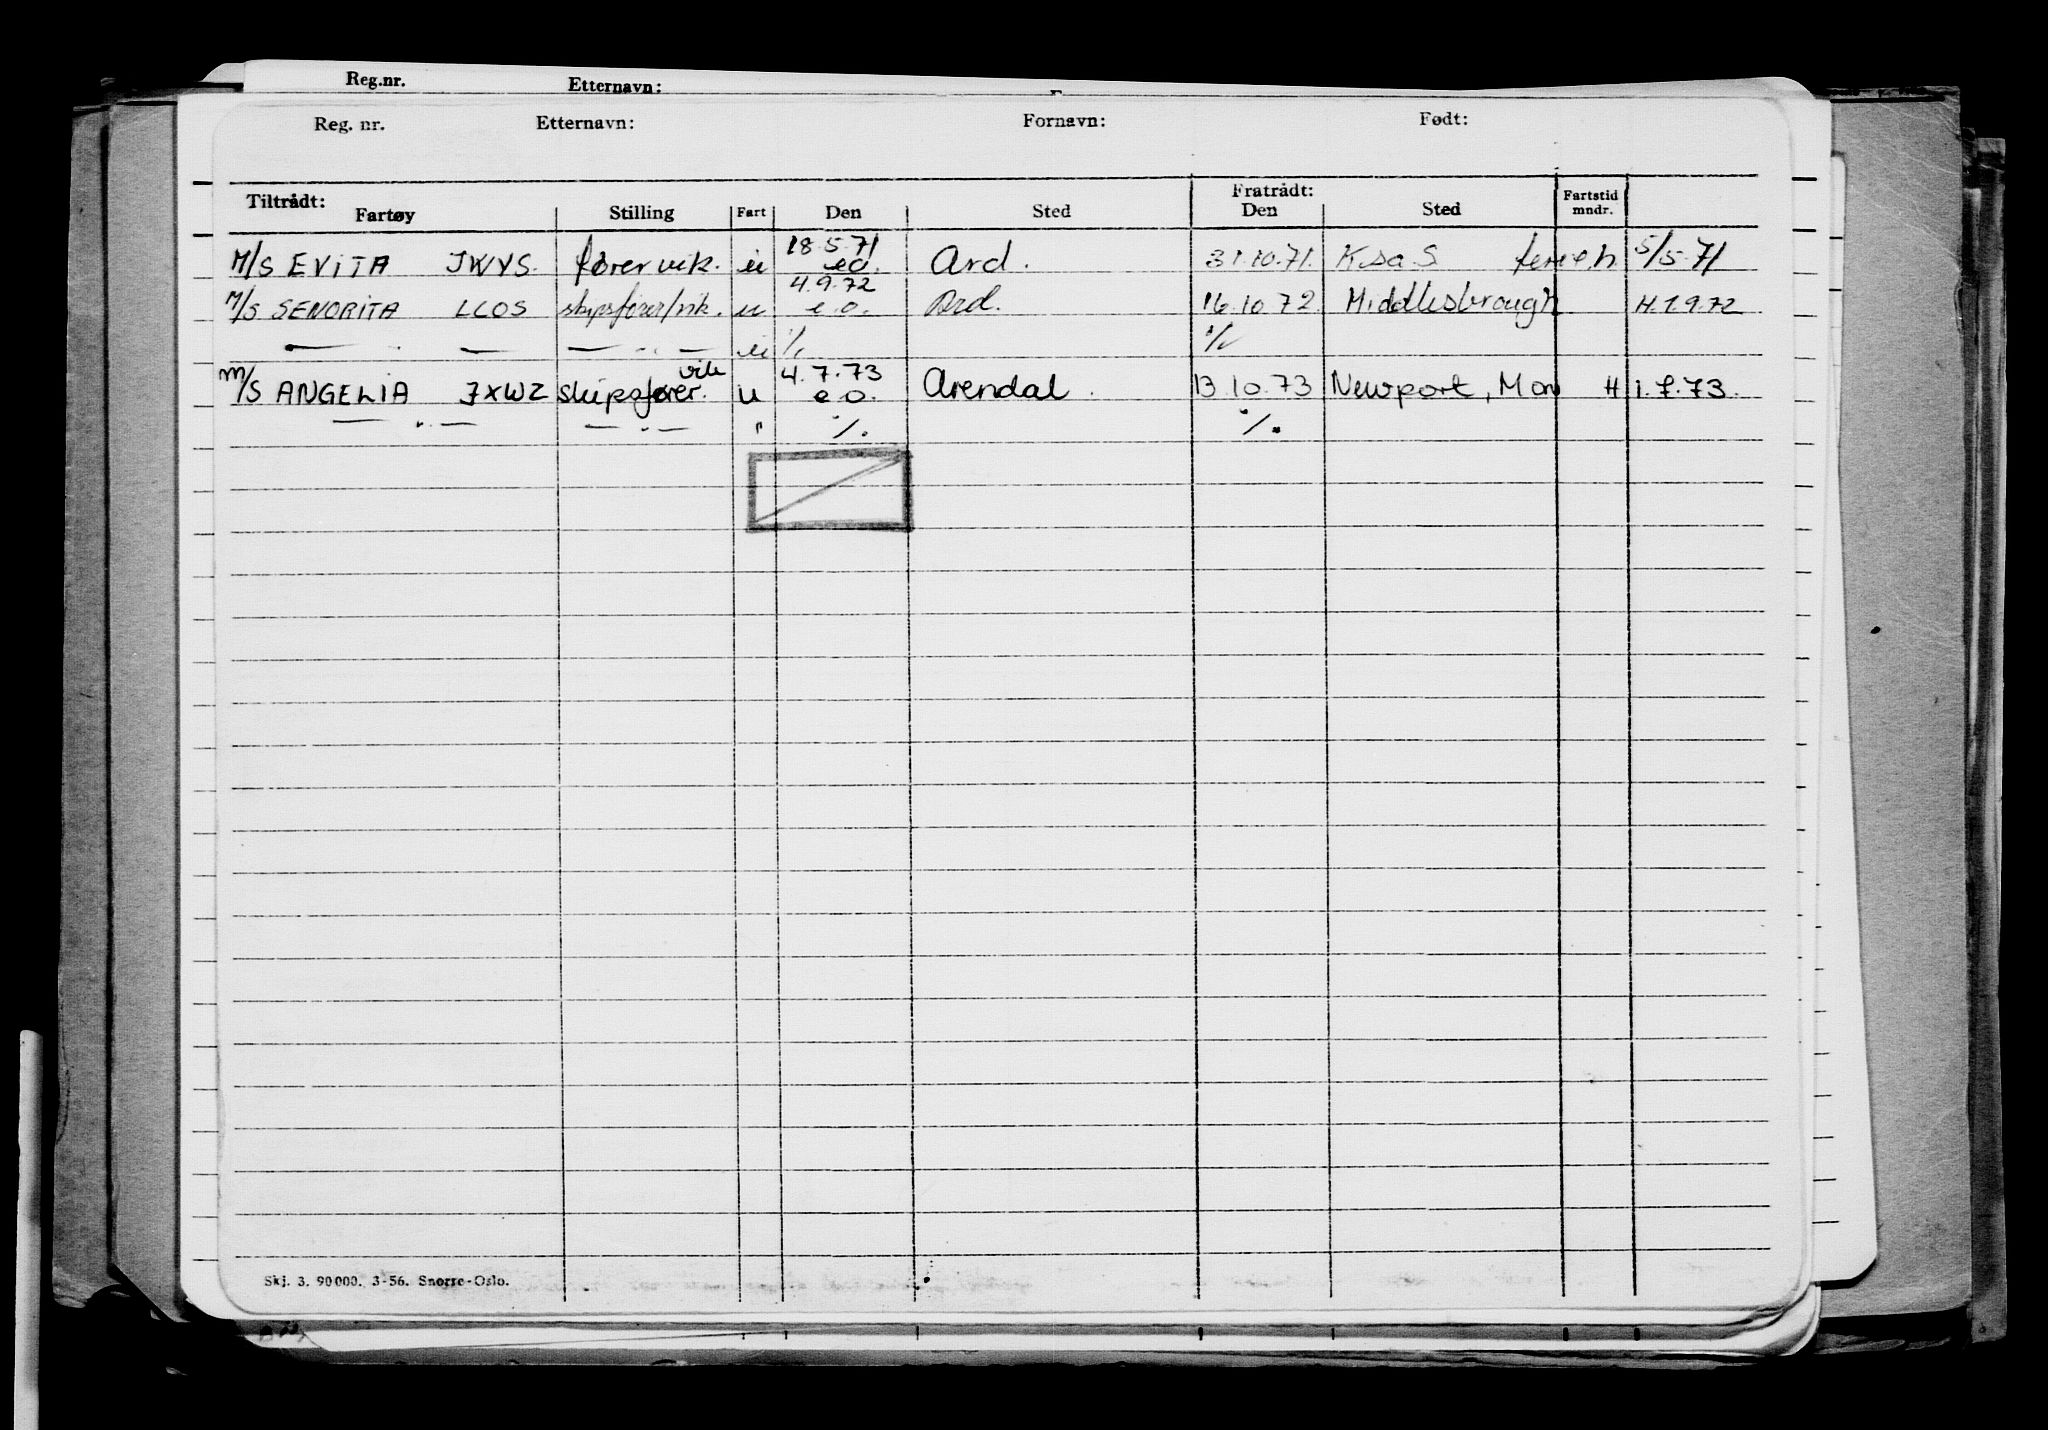 Reg.nr. Etternavn:
Reg. nr. Etternavn: Fornavn: Født:
Tiltrådt: Fratrådt:
Fartøy Stilling Fart Den Sted Den Sted Fartstid mndr.
18.5.71
M/S EVITA JWVS. fører vik. u e.o. Ard. 31.10.71. K.sa.S 5/5-71
4.9.72
M/S SENORITA LCOS skipsfører/vik. u e.o. Ard. 16.10.72 Middlesbrough H.1.9.72
— " — — — " — u % %
vik 4.7.73
M/S ANGELIA JXWZ skipsfører. u e.o. Arendal. 13.10.73 Newport, Mon H 1.7.73.
— " — — " — " % %
Skj. 3. 90000. 3-56. Snorre-Oslo.